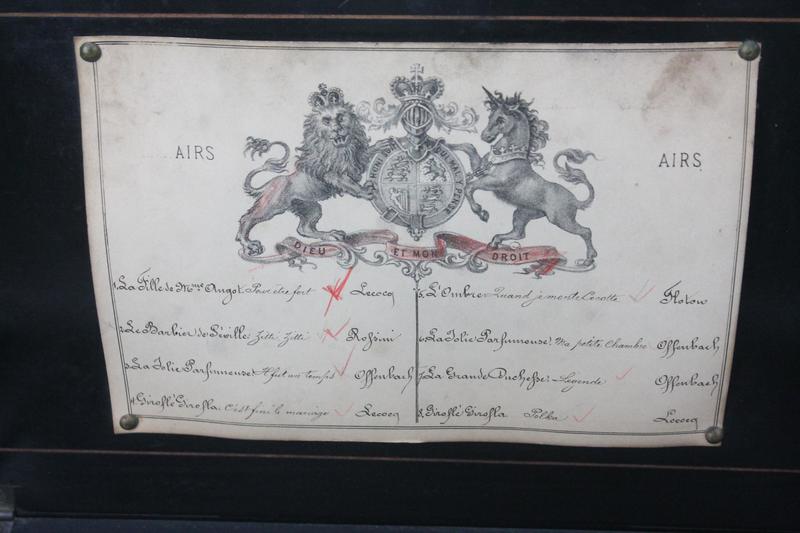 AIRS
AIRS
HONI SOIT QUI MAL Y PENSE
DIEU ET MON DROIT
1. La Fille de Mme Angot. Pour être fort Lecocq
2. Le Barbier de Séville. Zitti Zitti Rossini
3. La Jolie Parfumeuse. Il fut un temps Offenbach
4. Giroflé Girofla. C'est fini le mariage Lecocq
5. L'Ombre. Quand je monte Cocotte Flotow
6. La Jolie Parfumeuse. Ma petite Chambre Offenbach
7. La Grande Duchesse. Légende Offenbach
8. Giroflé Girofla Polka Lecocq